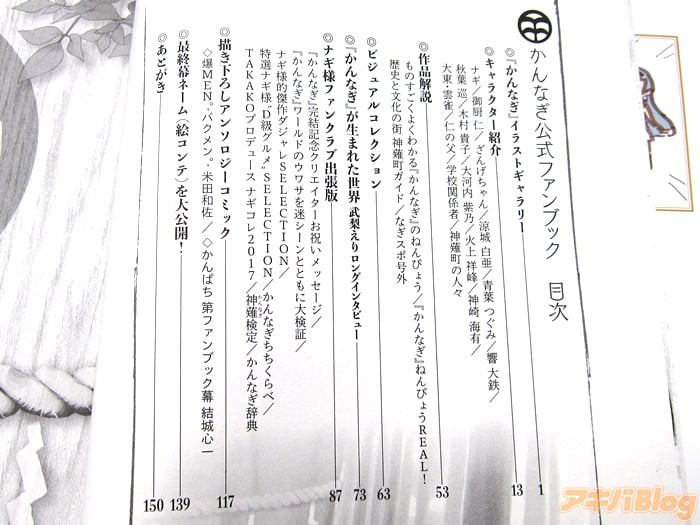 かんなぎ公式ファンブック 目次
◎『かんなぎ』イラストギャラリー 1
◎キャラクター紹介 13
ナギ／御厨 仁／ざんげちゃん／涼城 白亜／青葉 つぐみ／響 大鉄／
秋葉 巡／木村 貴子／大河内 紫乃／火上 祥峰／神崎 海有／
大東／雲雀／仁の父／学校関係者／神薙町の人々
◎作品解説 53
ものすごくよくわかる『かんなぎ』のねんぴょう／『かんなぎ』ねんぴょうREAL！
歴史と文化の街 神薙町ガイド／なぎスポ号外
◎ビジュアルコレクション 63
◎『かんなぎ』が生まれた世界 武梨えりロングインタビュー 73
◎ナギ様ファンクラブ出張版 87
『かんなぎ』完結記念クリエイターお祝いメッセージ／
『かんなぎ』ワールドのウワサを迷シーンとともに大検証／
ナギ様的傑作ダジャレSELECTION／
特選ナギ様"D級グルメ"SELECTION／かんなぎちちくらべ／
TAKAKOプロデュース ナギコレ2017／神薙検定／かんなぎ辞典
◎描き下ろしアンソロジーコミック 117
◇爆MEN。バクメン。 米田和佐／◇かんぱち 第ファンブック幕 結城心一
◎最終幕ネーム（絵コンテ）を大公開！ 139
◎あとがき 150
アキバBlog